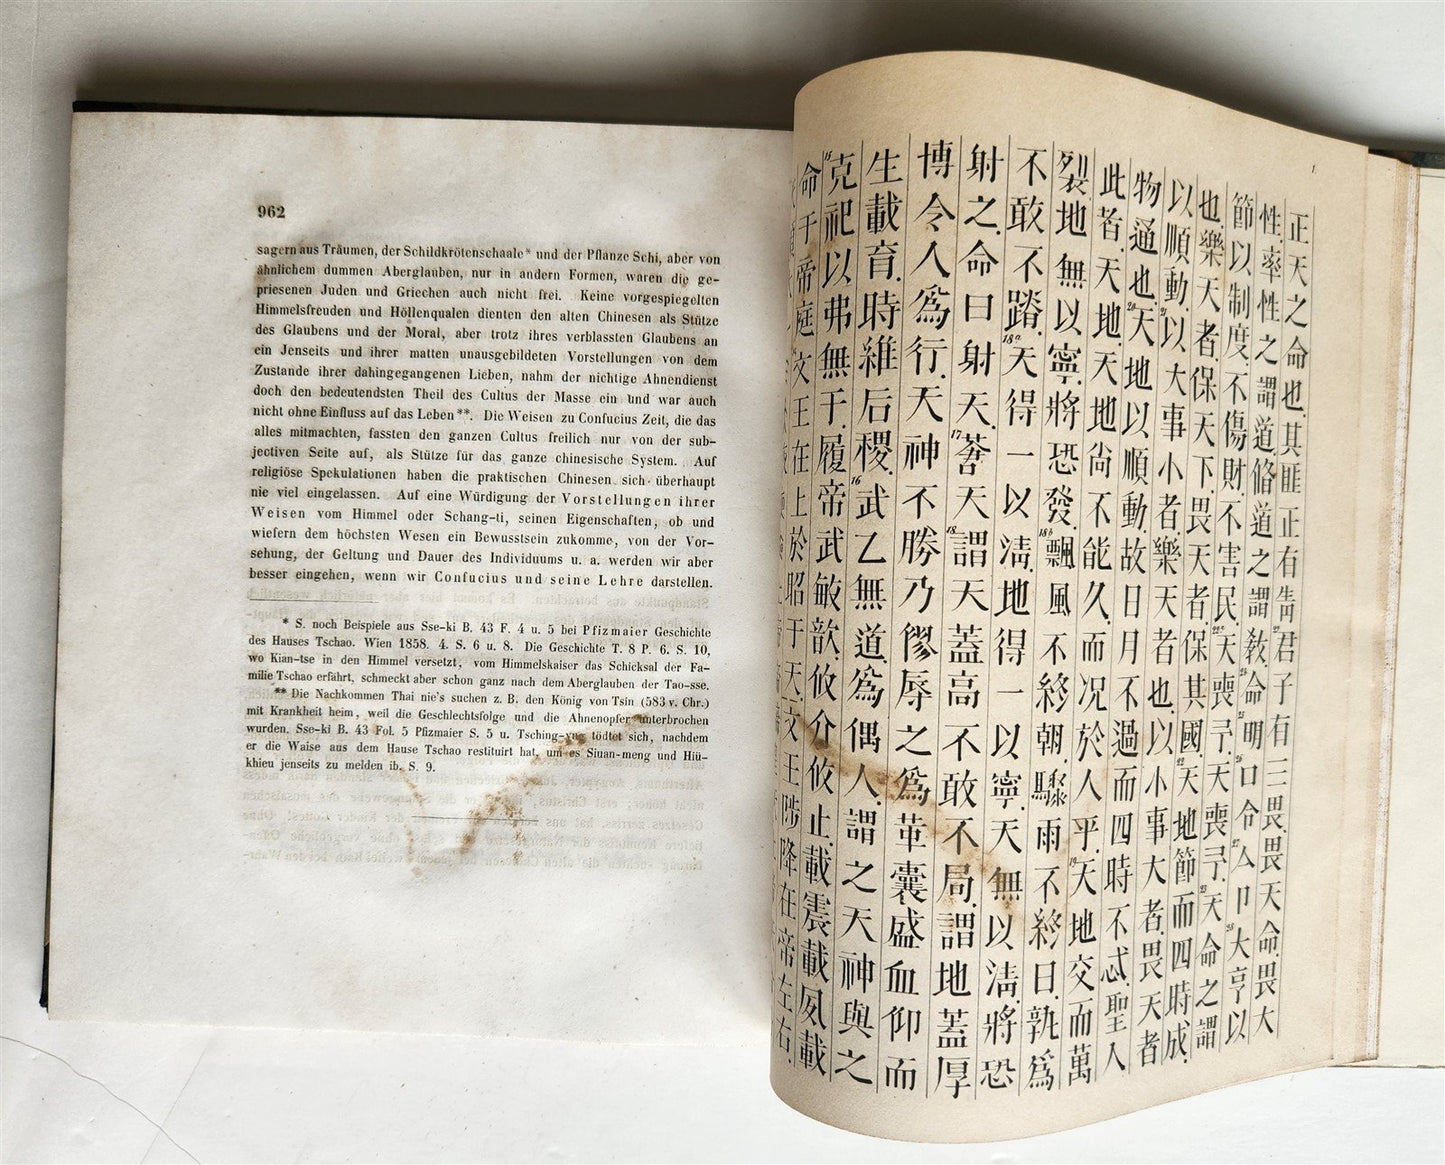 962
sagern aus Träumen, der Schildkrötenschaale* und der Pflanze Schi, aber von
ähnlichem dummen Aberglauben, nur in andern Formen, waren die ge-
priesenen Juden und Griechen auch nicht frei. Keine vorgespiegelten
Himmelsfreuden und Höllenqualen dienten den alten Chinesen als Stütze
des Glaubens und der Moral, aber trotz ihres verblassten Glaubens an
ein Jenseits und ihrer matten unausgebildeten Vorstellungen von dem
Zustande ihrer dahingegangenen Lieben, nahm der nichtige Ahnendienst
doch den bedeutendsten Theil des Cultus der Masse ein und war auch
nicht ohne Einfluss auf das Leben**. Die Weisen zu Confucius Zeit, die das
alles mitmachten, fassten den ganzen Cultus freilich nur von der sub-
jectiven Seite auf, als Stütze für das ganze chinesische System. Auf
religiöse Spekulationen haben die praktischen Chinesen sich überhaupt
nie viel eingelassen. Auf eine Würdigung der Vorstellungen ihrer
Weisen vom Himmel oder Schang-ti, seinen Eigenschaften, ob und
wiefern dem höchsten Wesen ein Bewusstsein zukomme, von der Vor-
sehung, der Geltung und Dauer des Individuums u. a. werden wir aber
besser eingehen, wenn wir Confucius und seine Lehre darstellen.
* S. noch Beispiele aus Sse-ki B. 43 F. 4 u. 5 bei Pfizmaier Geschichte
des Hauses Tschao. Wien 1858. 4. S. 6 u. 8. Die Geschichte T. 8 P. 6. S. 10,
wo Kian-tse in den Himmel versetzt, vom Himmelskaiser das Schicksal der Fa-
milie Tschao erfährt, schmeckt aber schon ganz nach dem Aberglauben der Tao-sse.
** Die Nachkommen Thai nie's suchen z. B. den König von Tsin (583 v. Chr.)
mit Krankheit heim, weil die Geschlechtsfolge und die Ahnenopfer unterbrochen
wurden. Sse-ki B. 43 Fol. 5 Pfizmaier S. 5 u. Tsching-yng tödtet sich, nachdem
er die Waise aus dem Hause Tschao restituirt hat, um es Siuan-meng und Hiü-
khieu jenseits zu melden ib. S. 9.
正天之命也.其匪正有眚君子有三畏.畏天命畏大
性.率性之謂道.脩道之謂敎.命明口令亼卩大亨以
節以制度.不傷財.不害民.天喪予.天喪予.天命之謂
也.樂天者.保天下.畏天者.保其國.天地節而四時成.
以順動.以大事小者.樂天者也.以小事大者.畏天者
物通也.天地以順動.故日月不過而四時不忒.聖人
此者.天地.天地尙不能久.而况於人乎.天地交而萬
裂地無以寧.將恐發.飄風不終朝.驟雨不終日.孰爲
不敢不蹐.天得一以淸.地得一以寧.天無以淸.將恐
射之.命曰射天.荅天謂天蓋高不敢不局.謂地蓋厚
博令人爲行.天神不勝乃僇辱之.爲革囊盛血仰而
生載育.時維后稷.武乙無道.爲偶人.謂之天神與之
克祀以弗無子.履帝武敏歆.攸介攸止.載震載夙載
命于帝庭文王在上於昭于天.文王陟降在帝左右.